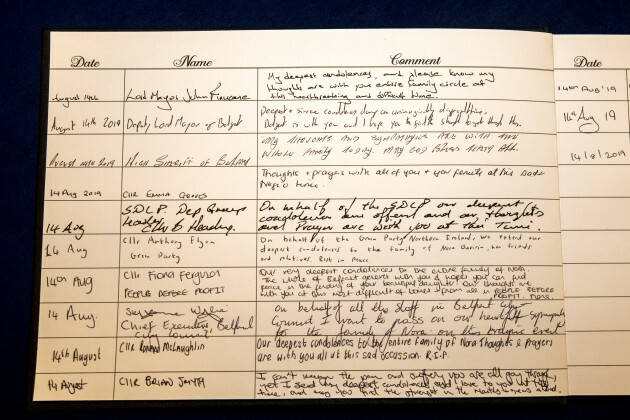 Date Name Comment Date
August 14th Lord Mayor John Finucane My deepest condolences, and please know my
thoughts are with your entire family circle at
this heartbreaking and difficult time
August 14th 2019 Deputy Lord Mayor of Belfast Deepest + sincere condolences during an unimaginably
Belfast is with you and I hope you
August 14th 2019 High Sheriff of Belfast My thoughts and sympathies are with the
whole family today. May God Bless
14 Aug 2019 Cllr Emma Groves Thoughts + prayers with all of you + your family at this sad
14 Aug S.D.L.P. Dep Group
Leader
On behalf of the SDLP our deepest
condolences are offered and our thoughts
and Prayers are with you at this Time.
14 Aug Cllr Anthony Flynn
Green Party
On behalf of the Green Party Northern Ireland, we extend our
deepest condolences to the family of Nora Quoirin, her friends
and relatives. Rest in Peace
14th Aug Cllr Fiona Ferguson
PEOPLE BEFORE PROFIT
Our very deepest condolences to the entire family of Nora.
The whole of Belfast with you & hopes you can find
peace in the of your beautiful daughter. Our thoughts are
with you at this most difficult of times. From all in PEOPLE BEFORE
PROFIT
14 Aug. Suzanne Wylie
Chief Executive Belfast
City Council
On behalf of all the staff in Belfast City
Council I want to pass on our heartfelt sympathy
to the family of Nora on this tragic event
14th August Cllr McLaughlin
Our deepest condolences to the entire family of Nora Thoughts & Prayers
are with you all at this sad occassion. R.I.P.
14 August Cllr BRIAN SMYTH
I can't imagine the pain and you are all going through
yet I send my deepest condolences and love to you at this
time, and may you find the strength in the
14th Aug '19
14th Aug 19
14/8/2019